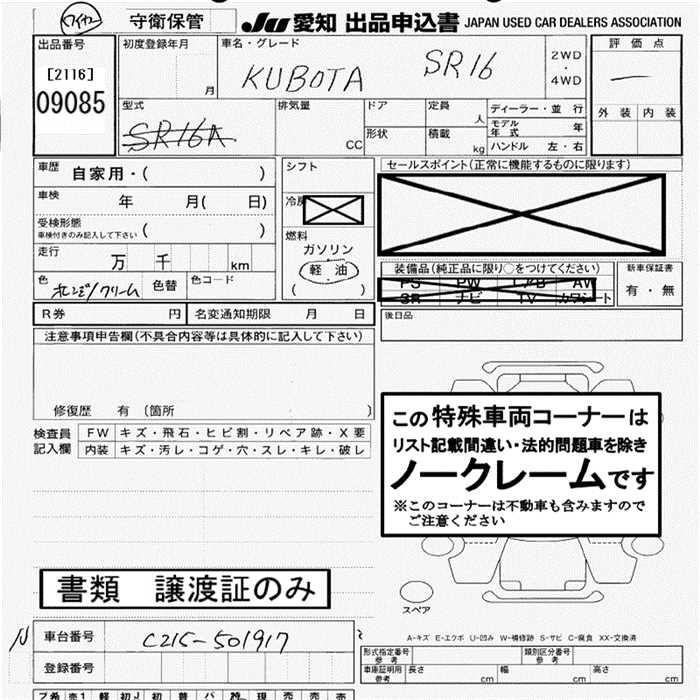 ワイヤー
守衛保管
JU 愛知 出品申込書 JAPAN USED CAR DEALERS ASSOCIATION
出品番号
[2116]
09085
初度登録年月
月
車名・グレード
KUBOTA SR16
2WD
・
4WD
評価点
外装 内装
型式
SR16A
排気量
CC
ドア
形状
定員
人
積載
kg
ディーラー・並行
モデル年式 年
ハンドル 左・右
車歴 自家用・( )
車検 年 月( 日)
受検形態
車検付きのみ記入して下さい ( )
走行 万 千 km
色 オレンジ/クリーム 色替 色コード
R券 円 名変通知期限 月 日
シフト
冷房
燃料
ガソリン
軽油
( )
セールスポイント(正常に機能するものに限ります)
装備品(純正品に限り○をつけてください)
PS PW エアB AW
SR ナビ TV カワシート
新車保証書
有・無
後日品
注意事項申告欄(不具合内容等は具体的に記入して下さい)
修復歴 有 〔箇所 〕
検査員
記入欄
FW キズ・飛石・ヒビ割・リペア跡・X要
内装 キズ・汚レ・コゲ・穴・スレ・キレ・破レ
この特殊車両コーナーは
リスト記載間違い・法的問題車を除き
ノークレームです
※このコーナーは不動車も含みますので
ご注意ください
書類 譲渡証のみ
スペア
A-キズ E-エクボ U-凹み W-補修跡 S-サビ C-腐食 XX-交換済
車台番号 C215-501917
登録番号
型式指定番号
参考
類別区分番号
参考
車庫証明用
参考
長さ cm 幅 cm 高さ cm